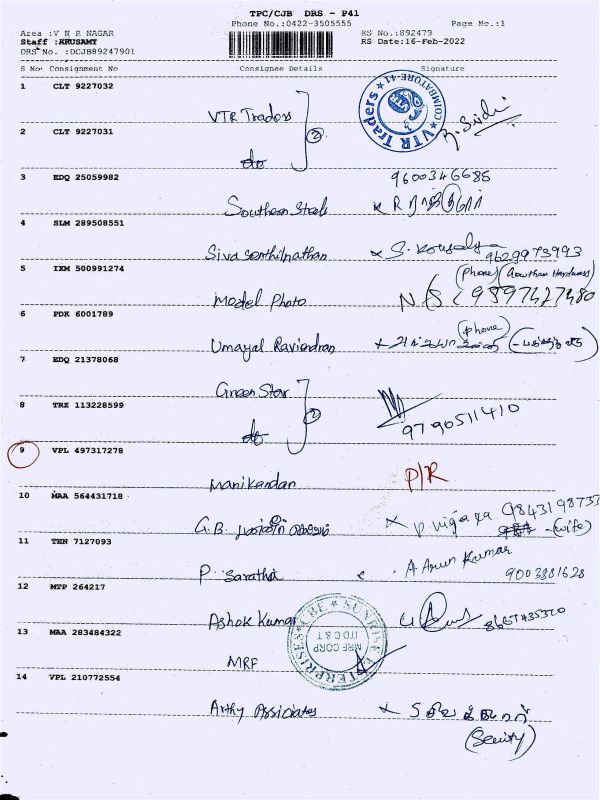 TPC/CJB DRS - P41
Phone No.:0422-3505555 Page No.:1
Area :V N R NAGAR RS No.:892479
Staff :ARUSAMY RS Date:16-Feb-2022
DRS No. :DCJB89247901
S No Consignment No Consignee Details Signature
1 CLT 9227032
VTR Traders
VTR Traders COIMBATORE-41
2 CLT 9227031
do 2
3 EDQ 25059982
9600346685
Southern Steels
4 SLM 289508551
Siva senthilnathan S. Kousalya 9629973993
5 IXM 500991274
(Phone) (Gowthan Hardware)
Model Photo
6 PDK 6001789
(phone)
Umayal Ravindran
7 EDQ 21378068
Green Star
8 TRZ 113228599
do 2 9790511410
9 VPL 497317278
Manikandan P/R
10 MAA 564431718
G.B. P. Vijaya (wife)
11 TEN 7127093
P. Saratha A. Arun Kumar
9003881628
12 MTP 264217
Ashok Kumar
SUNRISE ENTERPRISES CBE
MRF CORP
ITD C & T
13 MAA 283484322
MRF
14 VPL 210772554
Arthy Associates
(Security)